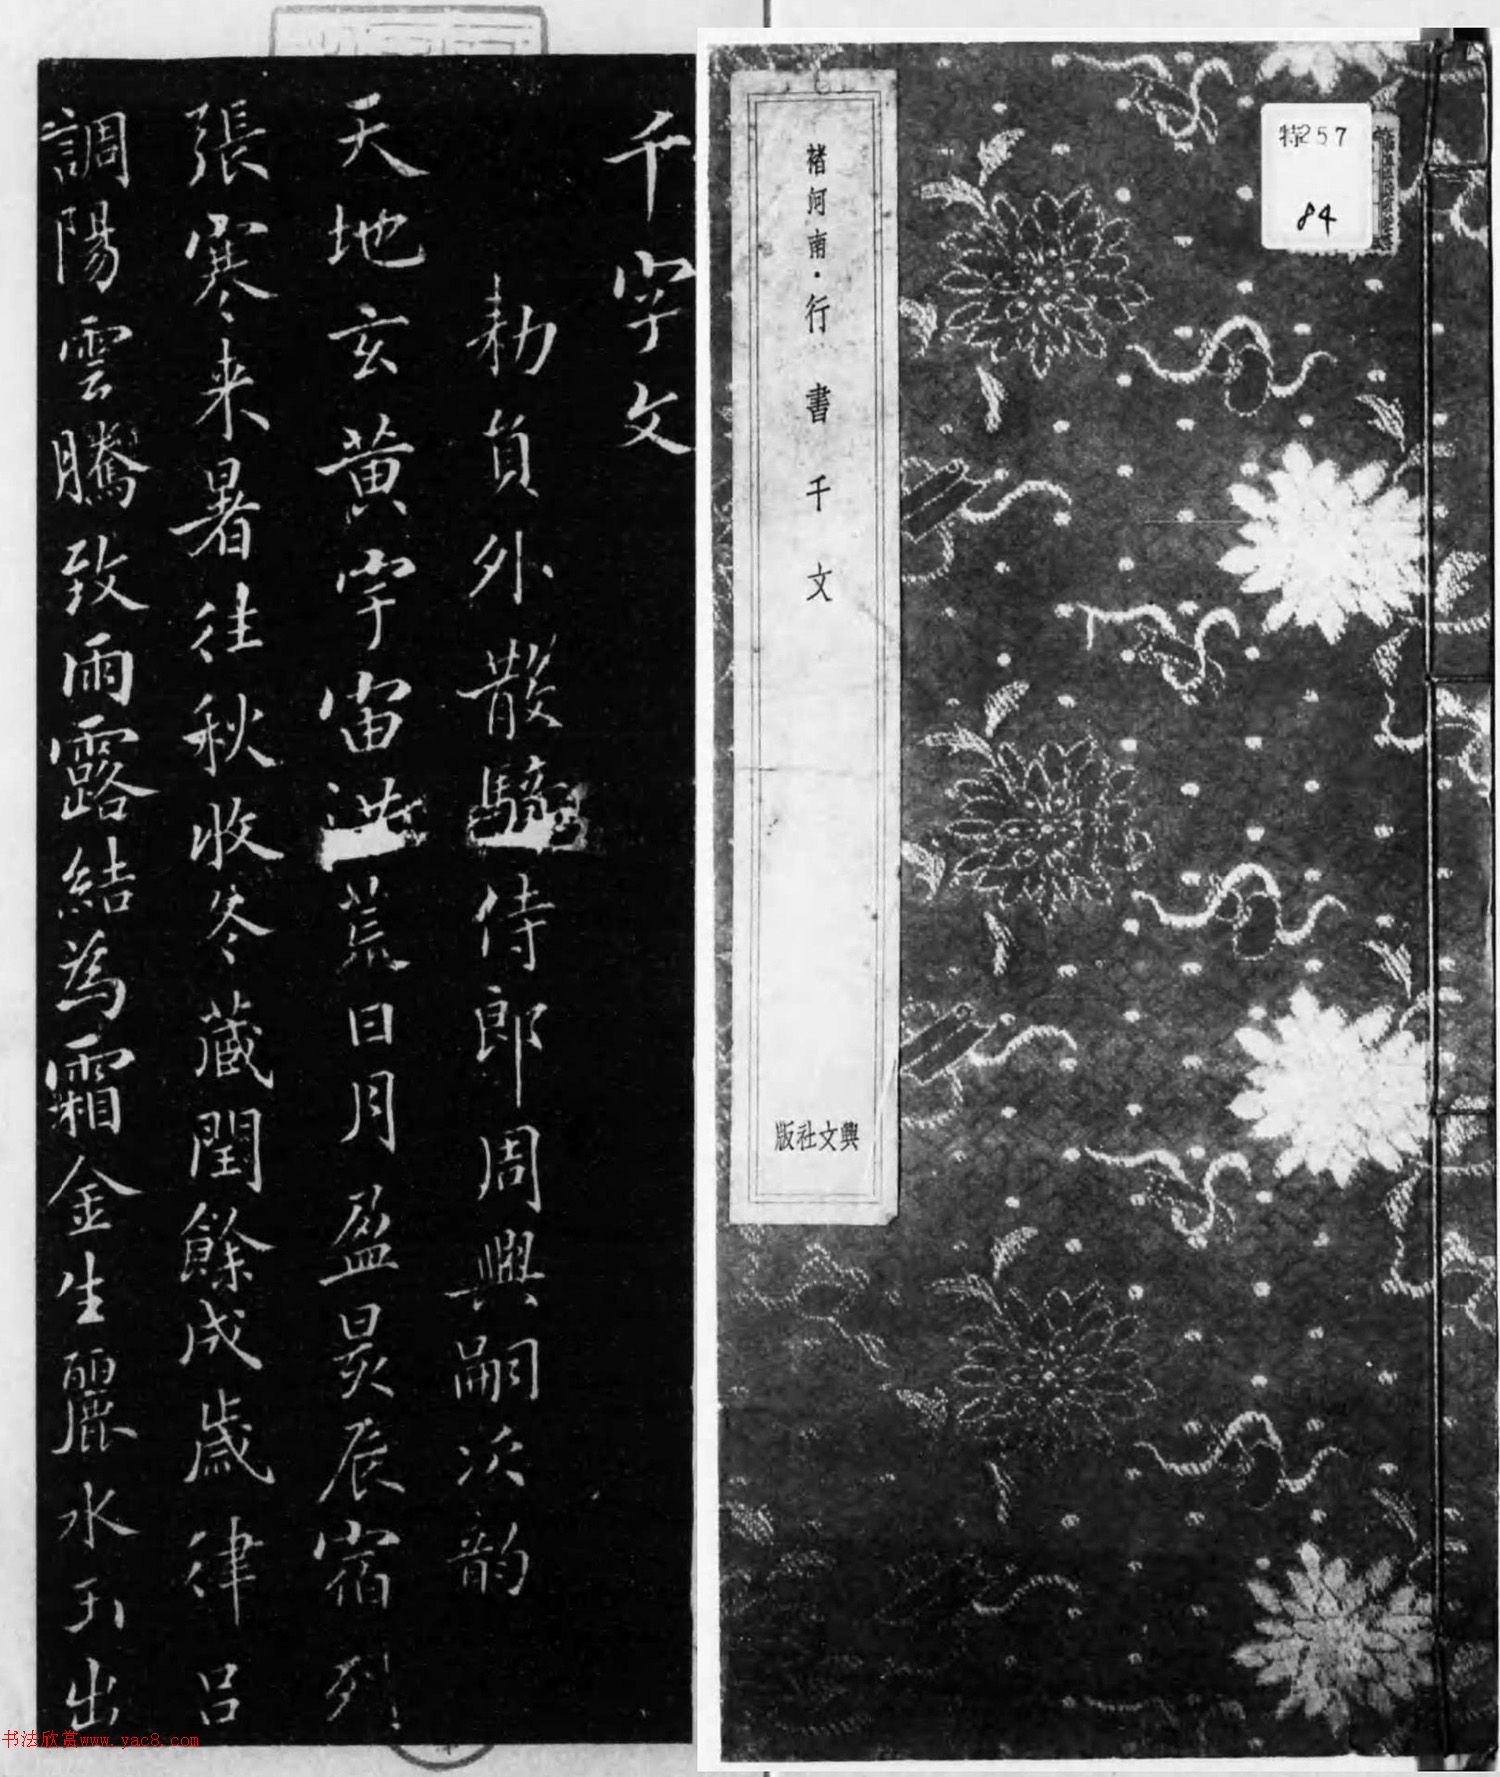 特257
84
褚河南・行書千文
興文社版
千字文
勑員外散騎侍郎周興嗣次韵
天地玄黄宇宙洪荒日月盈昃辰宿列
張寒来暑往秋收冬蔵閏餘成歳律呂
調陽雲騰致雨露結為霜金生麗水玉出
书法欣赏www.yac8.com